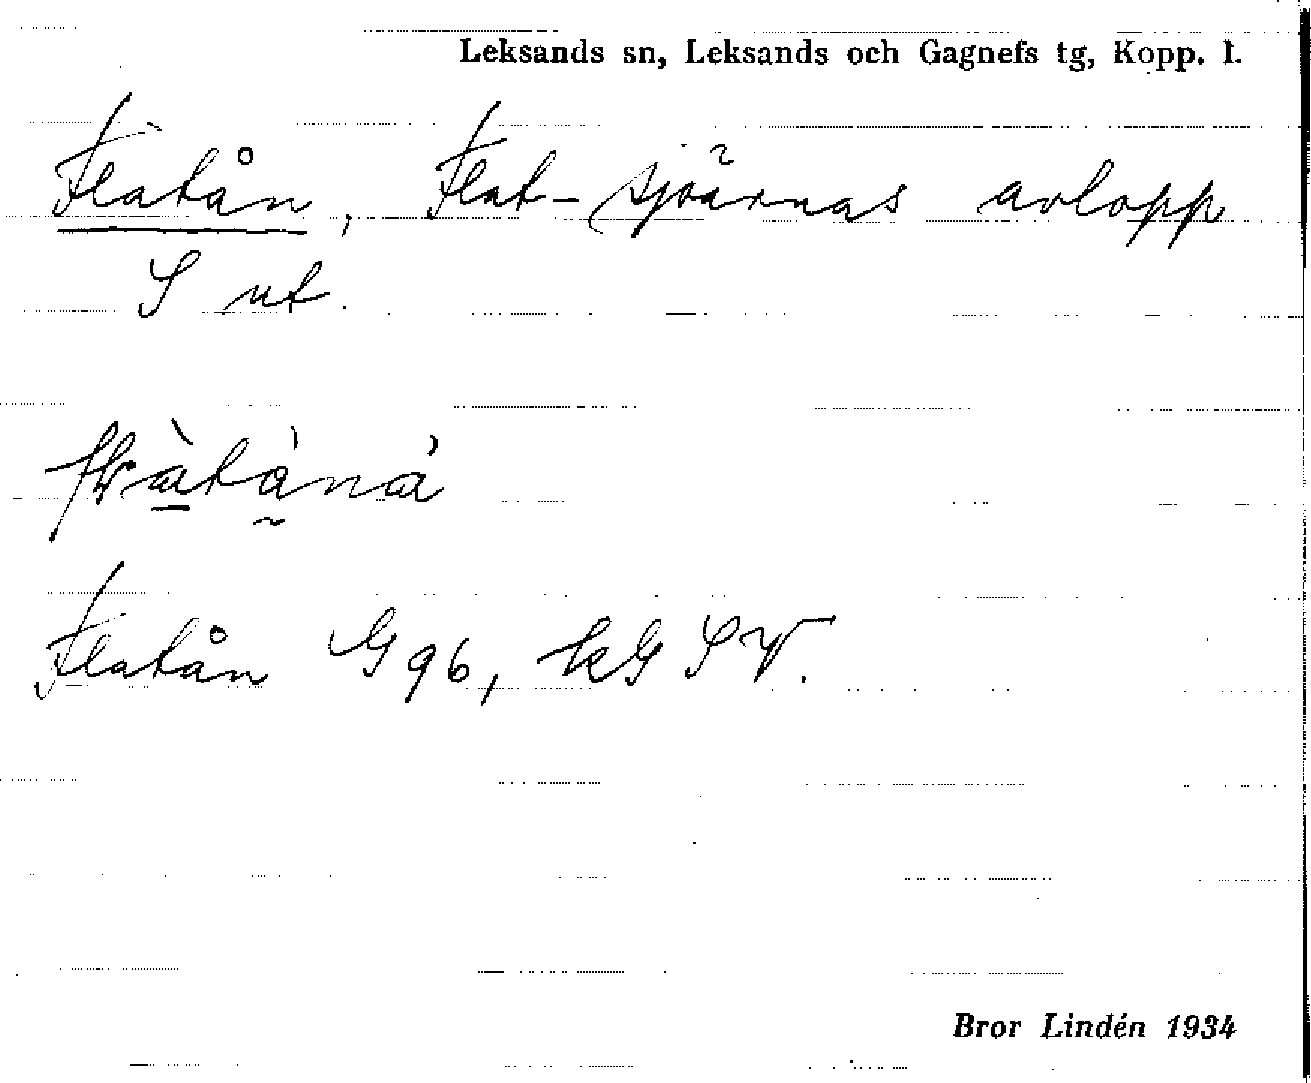 Leksands sn, Leksands och Gagnefs tg, Kopp. l.
Flatån, Flat-sjöarnas avlopp
S ut.
Flatån G 96, kG SV.
Bror Lindén 1934